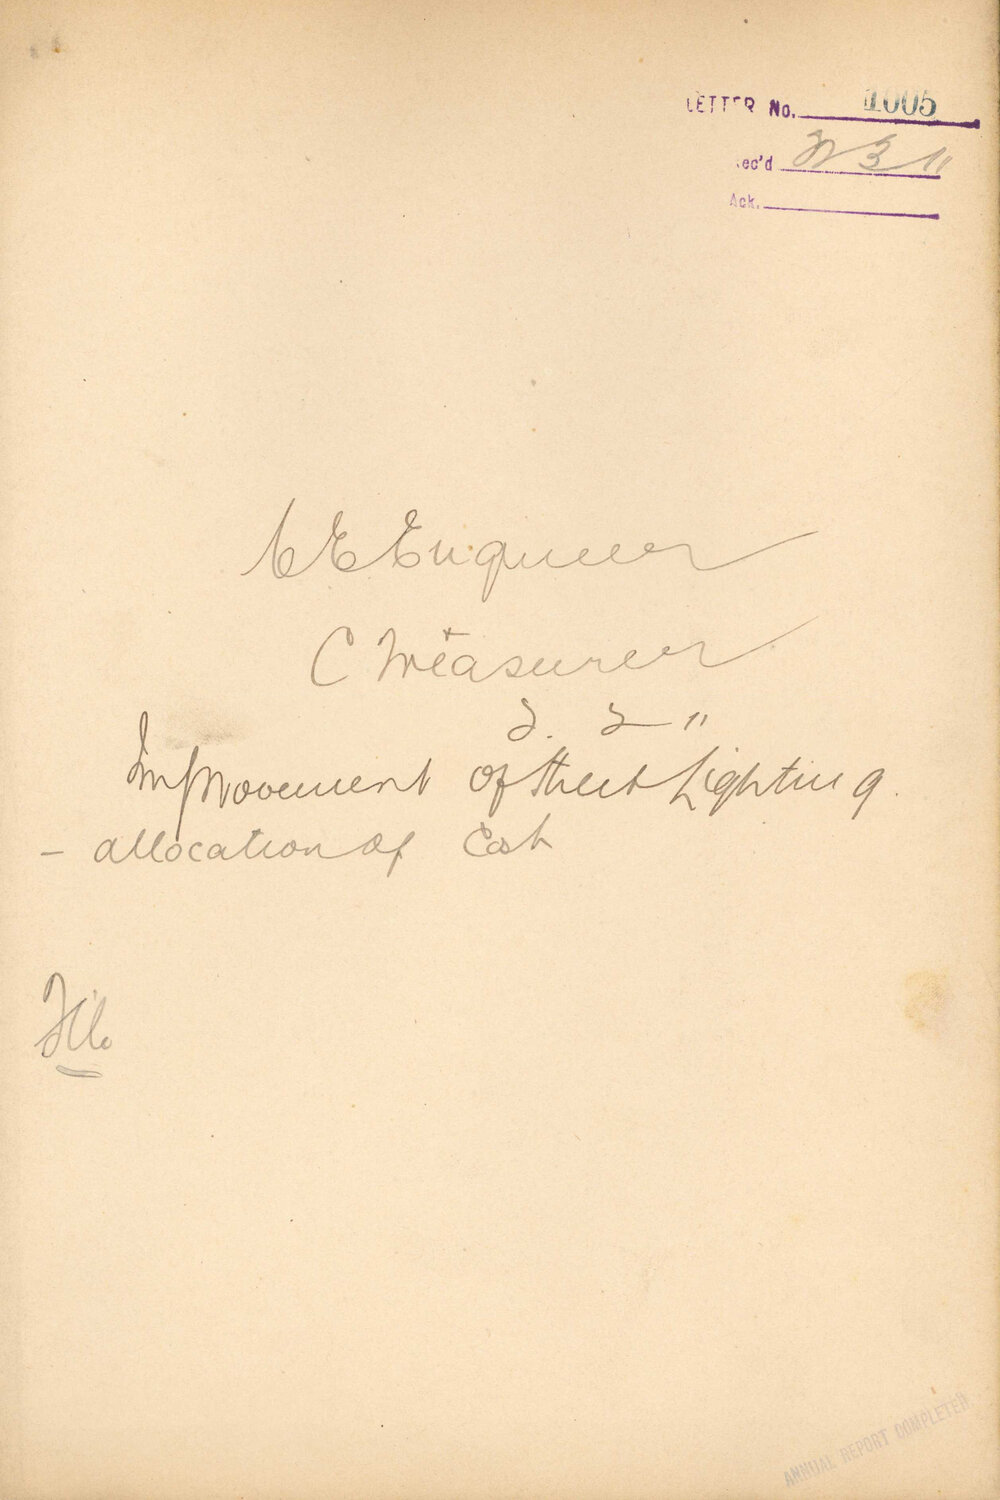 LETTER No. 1005
Rec'd 3 11
Ack.
C E Engineer
C Treasurer
2. 2 11
Improvement of Street Lighting.
- allocation of Cost
File
ANNUAL REPORT COMPLETED